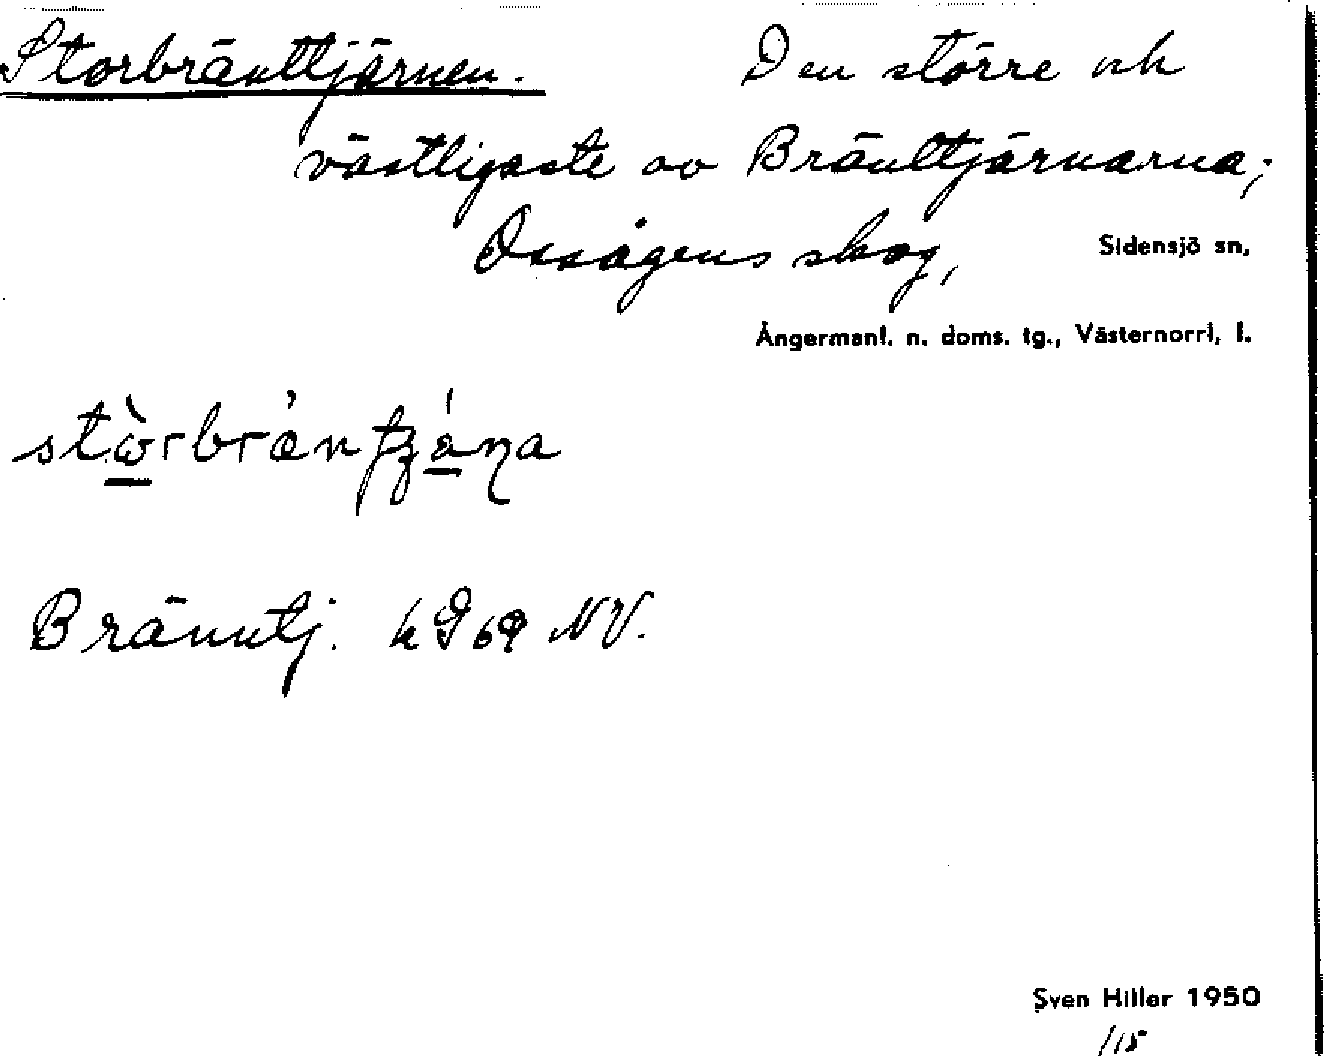 Storbränttjärnen. Den större och
västligaste av Bränttjärnarna;
skog, Sidensjö sn,
Ångermanl. n. doms. tg., Västernorrl, l.
Bränntj. NV.
Sven Hiller 1950
1/15